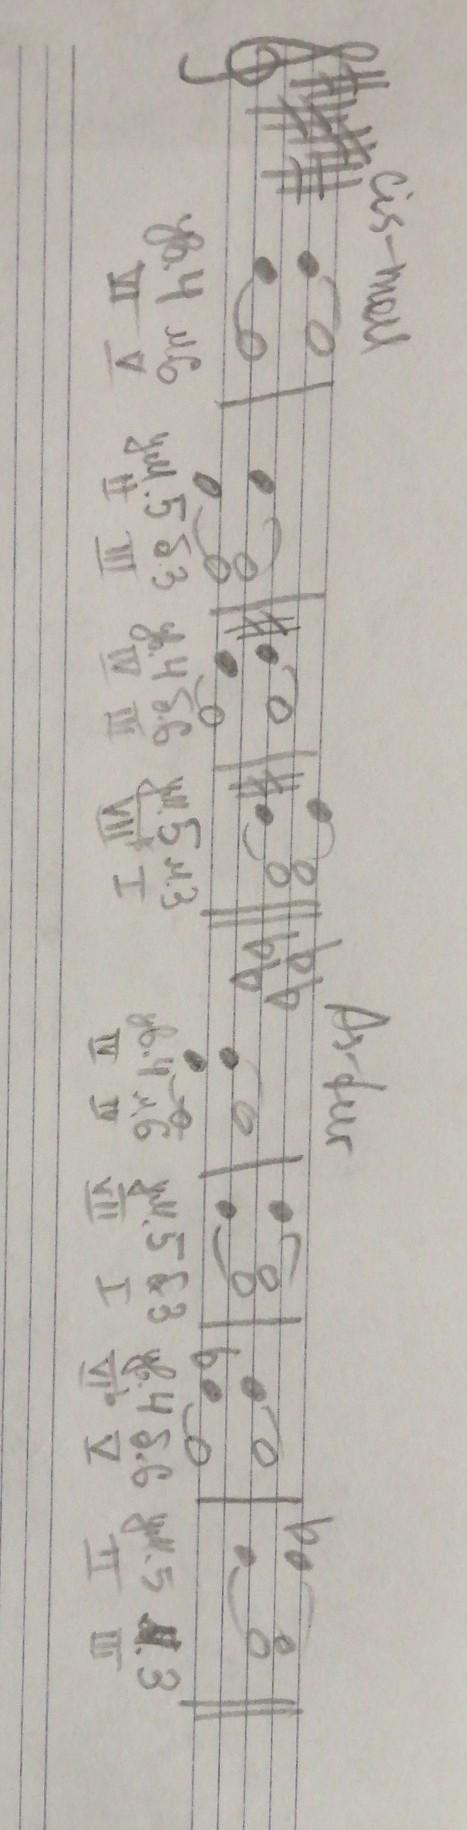 cis-moll As-dur
ув.4 м6 ум.5 б.3 ув.4 б.6 ум.5 м.3 ув.4 м.6 ум.5 б.3 ув.4 б.6 ум.5 м.3
VI V II III IV III VII♯ I IV IV VII I VI♭ V II III